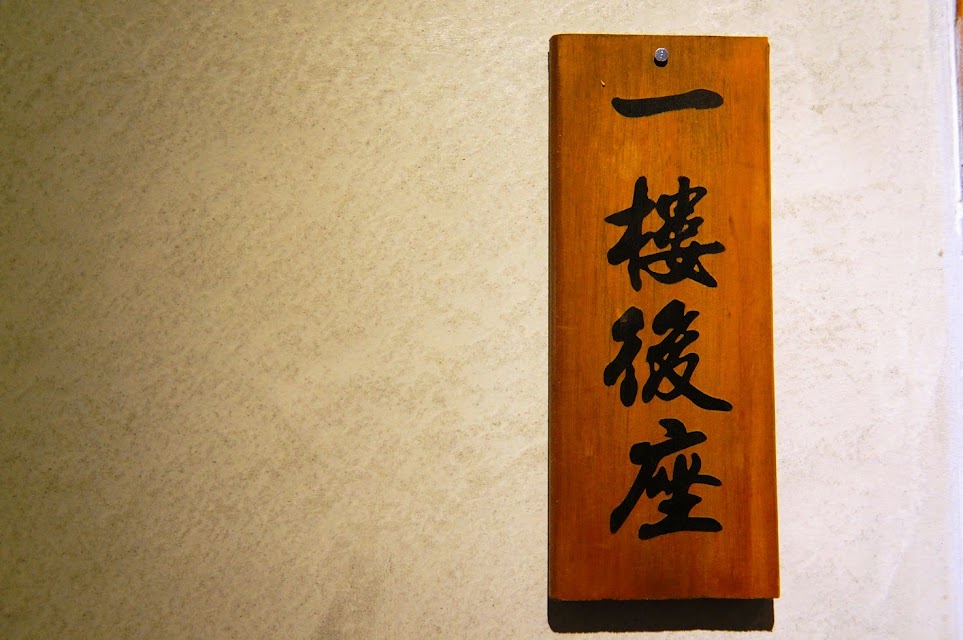 一樓後座